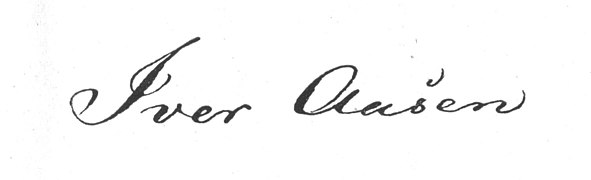 Iver Aasen